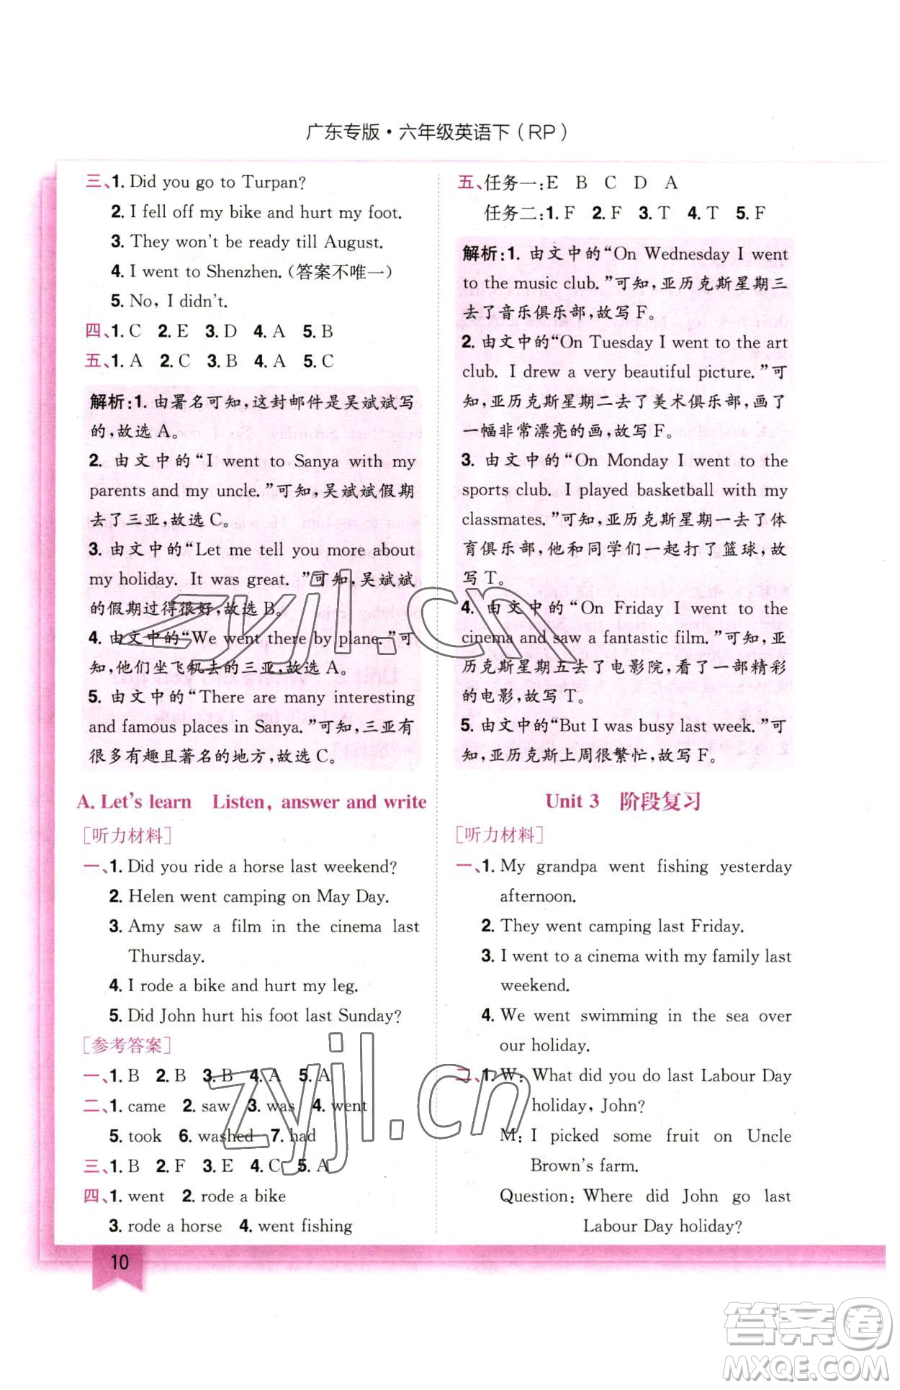 广东专版·六年级英语下（RP）
三、1. Did you go to Turpan?
2. I fell off my bike and hurt my foot.
3. They won't be ready till August.
4. I went to Shenzhen. (答案不唯一)
5. No, I didn't.
四、1. C 2. E 3. D 4. A 5. B
五、1. A 2. C 3. B 4. A 5. C
解析:1. 由署名可知,这封邮件是吴斌斌写
的,故选 A。
2. 由文中的“I went to Sanya with my
parents and my uncle.”可知,吴斌斌假期
去了三亚,故选 C。
3. 由文中的“Let me tell you more about
my holiday. It was great. ”可知,吴斌斌
的假期过得很好,故选 B。
4. 由文中的“We went there by plane.”可
知,他们坐飞机去的三亚,故选 A。
5. 由文中的“There are many interesting
and famous places in Sanya.”可知,三亚有
很多有趣且著名的地方,故选 C。
A. Let's learn Listen, answer and write
[听力材料]
一、1. Did you ride a horse last weekend?
2. Helen went camping on May Day.
3. Amy saw a film in the cinema last
Thursday.
4. I rode a bike and hurt my leg.
5. Did John hurt his foot last Sunday?
[参考答案]
一、1. B 2. B 3. B 4. A 5. A
二、1. came 2. saw 3. was 4. went
5. took 6. washed 7. had
三、1. B 2. F 3. E 4. C 5. A
四、1. went 2. rode a bike
3. rode a horse 4. went fishing
10
五、任务一:E B C D A
任务二:1. F 2. F 3. T 4. T 5. F
解析:1. 由文中的“On Wednesday I went
to the music club. ”可知,亚历克斯星期三
去了音乐俱乐部,故写 F。
2. 由文中的“On Tuesday I went to the art
club. I drew a very beautiful picture. ”可
知,亚历克斯星期二去了美术俱乐部,画了
一幅非常漂亮的画,故写 F。
3. 由文中的“On Monday I went to the
sports club. I played basketball with my
classmates. ”可知,亚历克斯星期一去了体
育俱乐部,他和同学们一起打了篮球,故
写 T。
4. 由文中的“On Friday I went to the
cinema and saw a fantastic film. ”可知,亚
历克斯星期五去了电影院,看了一部精彩
的电影,故写 T。
5. 由文中的“But I was busy last week. ”可
知,亚历克斯上周很繁忙,故写 F。
Unit 3 阶段复习
[听力材料]
一、1. My grandpa went fishing yesterday
afternoon.
2. They went camping last Friday.
3. I went to a cinema with my family last
weekend.
4. We went swimming in the sea over
our holiday.
二、1. W: What did you do last Labour Day
holiday, John?
M: I picked some fruit on Uncle
Brown's farm.
Question: Where did John go last
Labour Day holiday?
zyjl.cn
zyjl.cn
答案圈
MXQE.COM